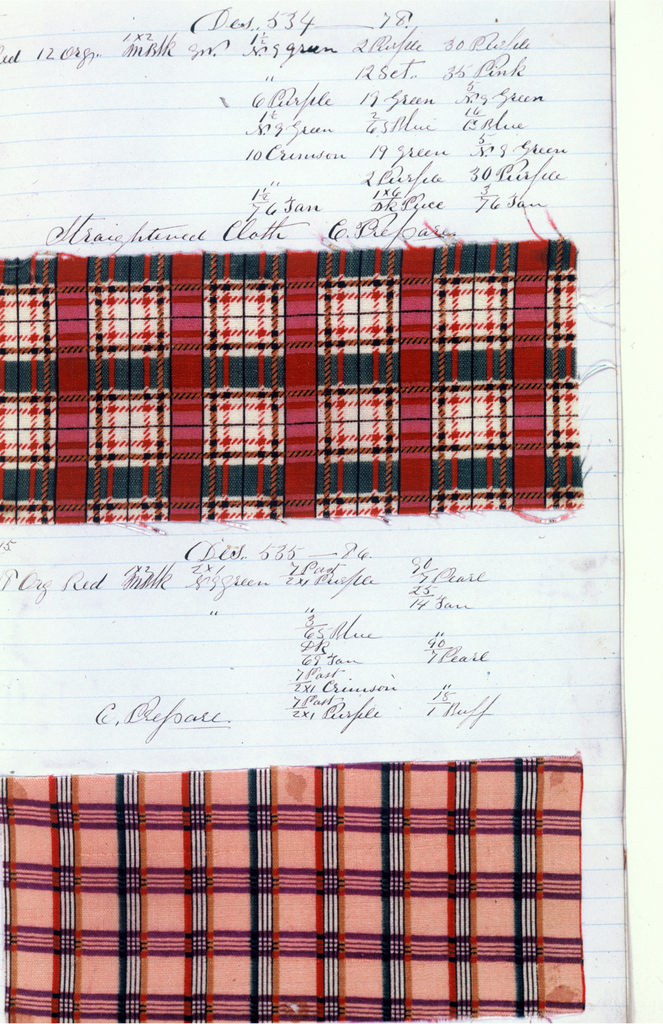 Des. 534 — 78.
Red 12 Org. 1x2 MBlk 1½ No 9 green 2 Purple 30 Purple
" 12 Set. 35 Pink
6 Purple 19 Green 5 No 9 Green
1½ No 9 Green 2/65 Blue 16 Blue
10 Crimson 19 green 5 No 9 Green
" 2 Purple 30 Purple
1½/76 Tan 1x6 DK Puce 3/76 Tan
Straightened Cloth C. Prepare
15 Des. 535 — 76
Org Red 1x2 MBlk 2x1 No 9 green 7 Past 2x1 Purple 90/7 Pearl
25/19 Tan
" "
3/65 Blue "
DK 69 Tan 90/7 Pearl
7 Past 2x1 Crimson "
C. Prepare. 7 Past 2x1 Purple 18/1 Buff